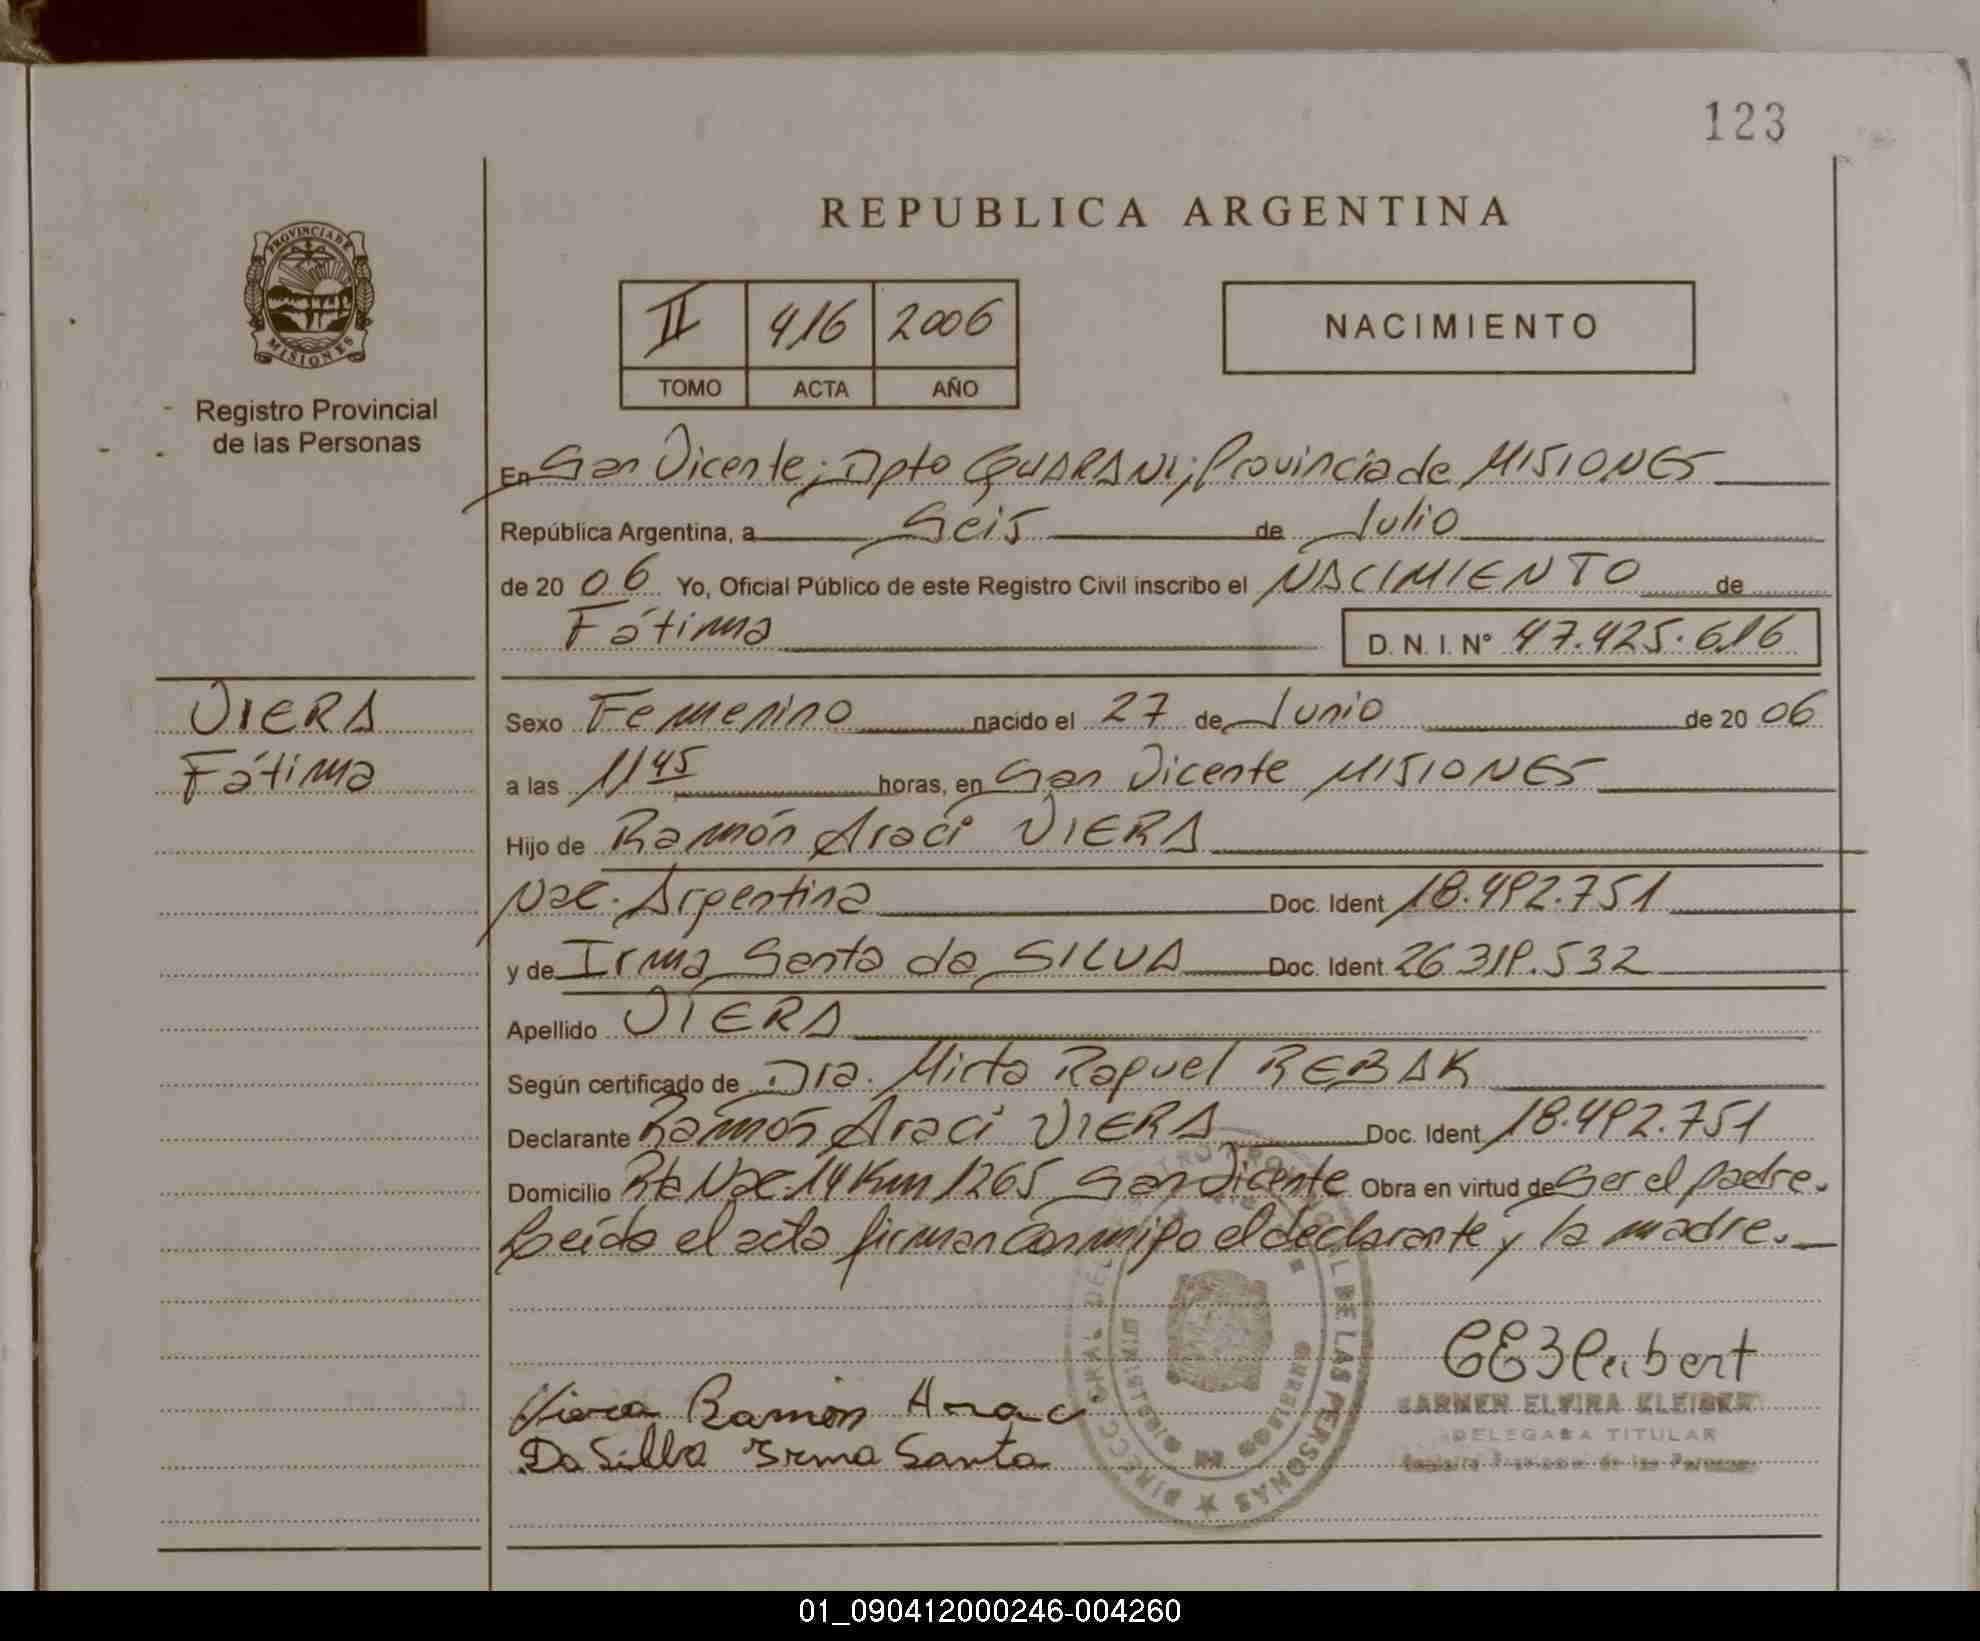 123
REPUBLICA ARGENTINA
PROVINCIA DE
MISIONES
Registro Provincial
de las Personas
II 416 2006
TOMO ACTA AÑO
NACIMIENTO
En San Vicente; Dpto GUARANI; Provincia de MISIONES
República Argentina, a Seis de Julio
de 20 06 Yo, Oficial Público de este Registro Civil inscribo el NACIMIENTO de
Fátima
D. N. I. Nº 47.425.616
VIERA
Fátima
Sexo Femenino nacido el 27 de Junio de 20 06
a las 11 45 horas, en San Vicente MISIONES
Hijo de Ramón Araci VIERA
Nac. Argentina Doc. Ident 18.492.751
y de Irma Santa da SILVA Doc. Ident. 26.319.532
Apellido VIERA
Según certificado de Dra. Mirta Raquel REBAK
Declarante Ramón Araci VIERA Doc. Ident 18.492.751
Domicilio Rta Nac. 14 Km 1265 San Vicente Obra en virtud de Ser el padre.
Leída el acta firman conmigo el declarante y la madre.
Viera Ramón Arac
Da Silba Irma Santa
DELEGADA TITULAR
DE LAS PERSONAS
01_090412000246-004260